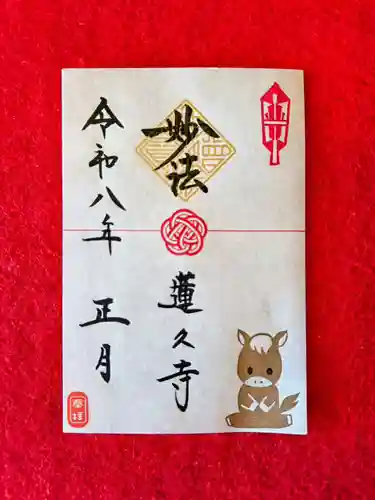 奉拝
妙法
蓮久寺
令和八年 正月